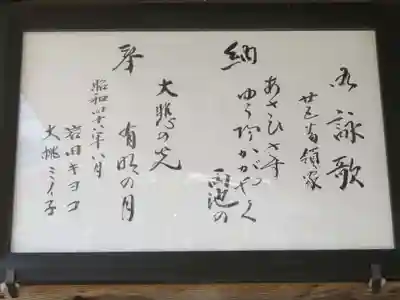 御詠歌
廿五番領家
あさひさす
ゆう日かがやく
雨池の
大悲の光
有明の月
奉納
昭和四十八年八月
岩田キヨコ
大桃ミイ子